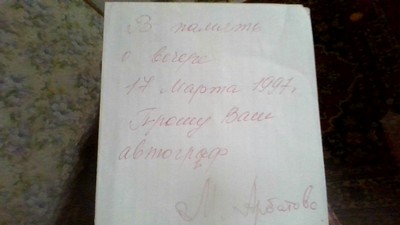 В память
о вечере
17 Марта 1997г
Прошу Ваш
автограф
М Арбатова